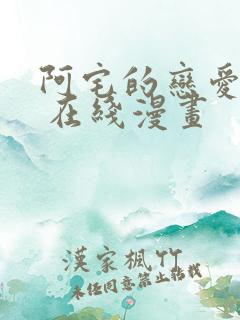 阿宅的戀愛
在綫漫畫
漢家楓竹
未經同意禁止轉載